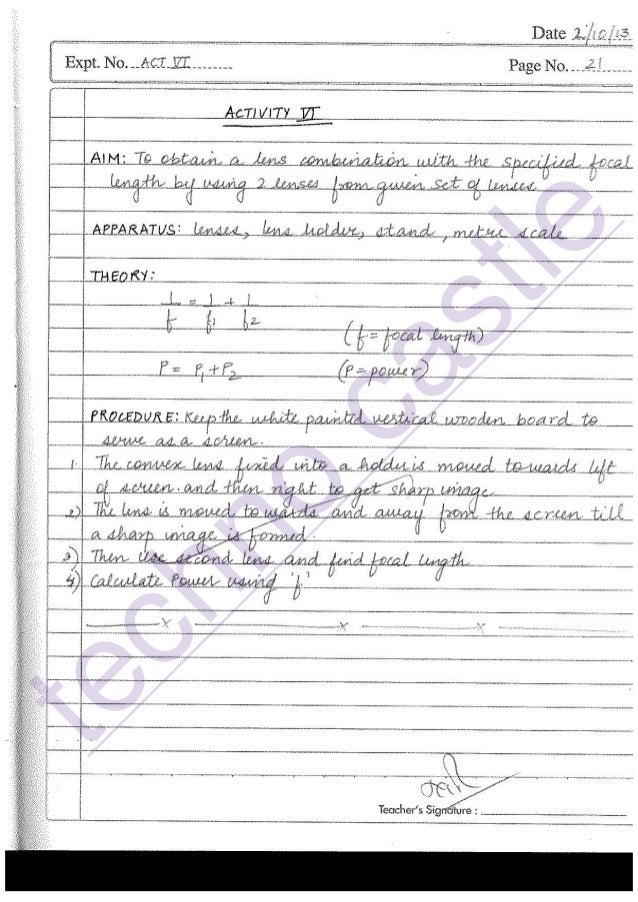 Date 2/10/13
Expt. No. ACT VI
Page No. 21
ACTIVITY VI
AIM: To obtain a lens combination with the specified focal
length by using 2 lenses from given set of lenses
APPARATUS: lenses, lens holder, stand, metric scale
THEORY:
1/f = 1/f1 + 1/f2
(f = focal length)
P = P1 + P2 (P = power)
PROCEDURE: Keep the white painted vertical wooden board to
serve as a screen.
1. The convex lens fixed into a holder is moved towards left
of screen. and then right to get sharp image
2) The lens is moved towards and away from the screen till
a sharp image is formed.
3) Then use second lens and find focal length
4) Calculate Power using 'f'
x x x
Teacher's Signature :
techno castle